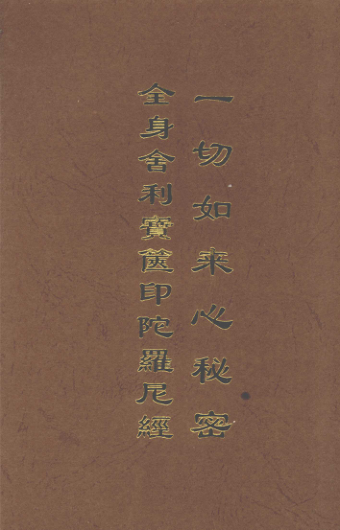 一切如来心秘密
全身舍利寳篋印陀羅尼經